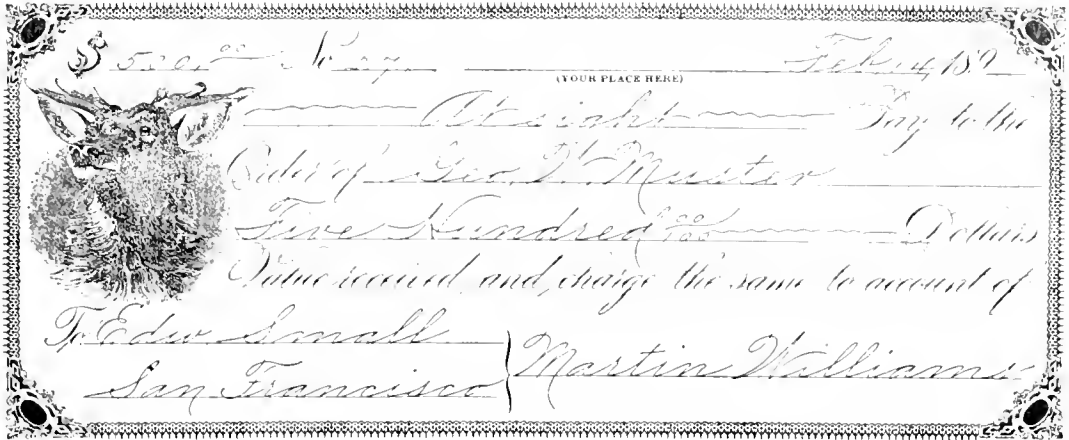 $ 500.00 No 27. Feb. 4, 189
(YOUR PLACE HERE)
At sight Pay to the
Order of Geo. W. Muster
Five Hundred 00/100 Dollars
Value received and charge the same to account of
To Edw Small
San Francisco
Martin Williams